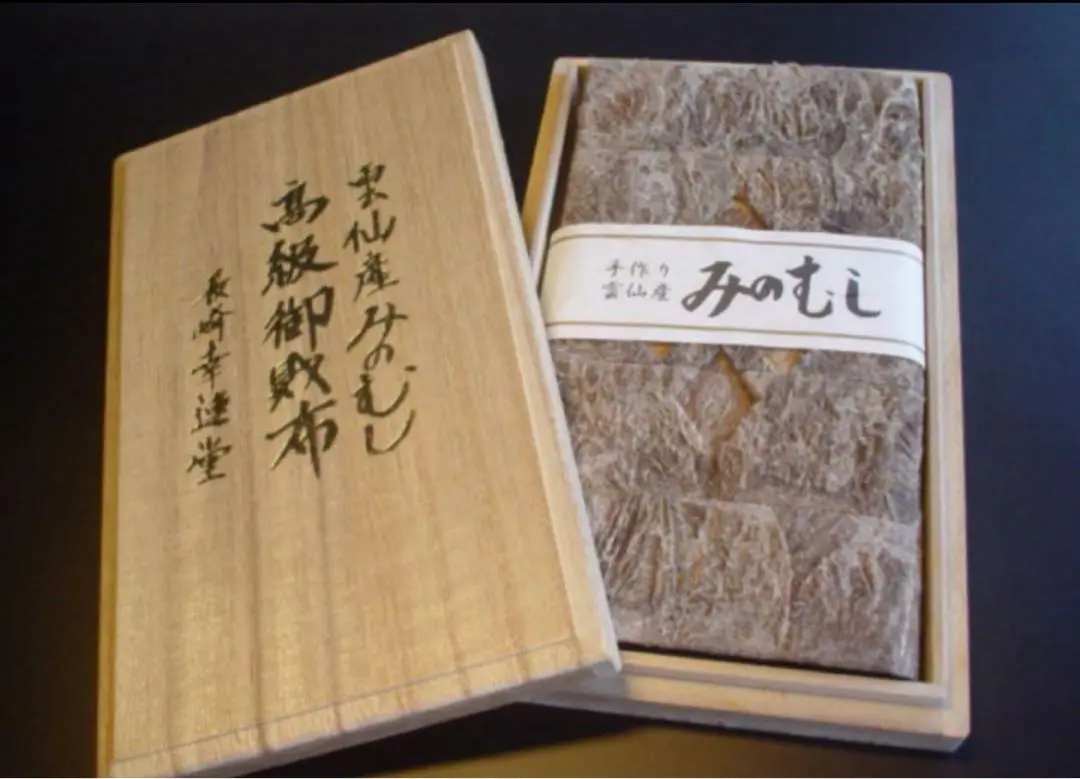 雲仙産みのむし
高級御財布
長崎幸運堂
手作り
雲仙産
みのむし